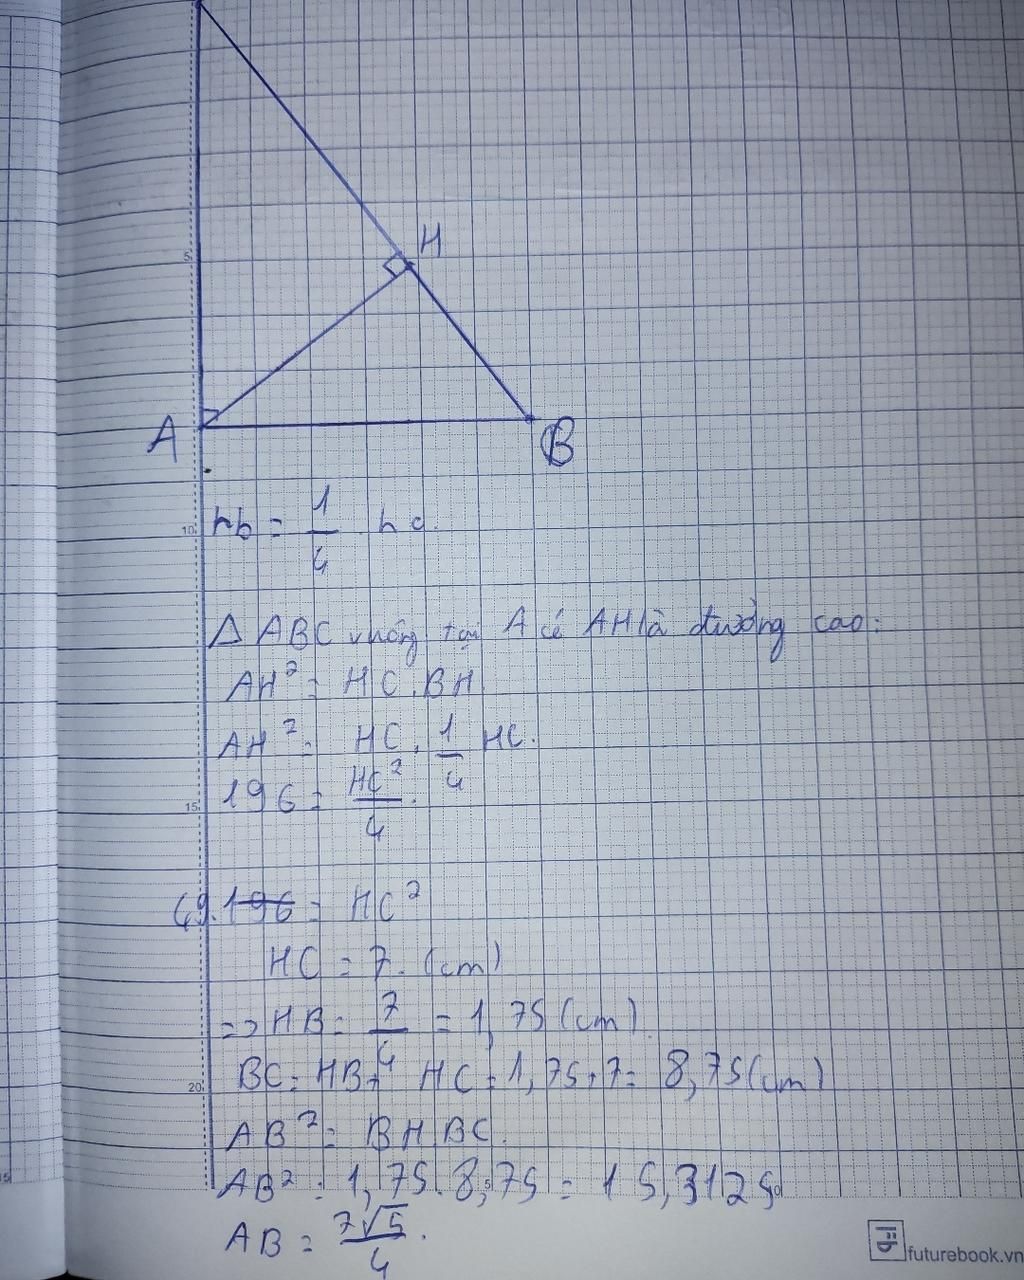 H
5
A
B
10
hb = 1/4 hc.
Δ ABC vuông tại A có AH là đường cao:
AH² = HC.BH
AH² = HC. 1/4 HC.
15
196 = HC²/4.
49.196 = HC²
HC = 7. (cm)
=> HB = 7/4 = 1,75 (cm)
20
BC = HB + HC = 1,75 + 7 = 8,75 (cm)
AB² = BH BC.
AB² = 1,75. 8,75 = 15,3125
AB = 7√5/4.
futurebook.vn